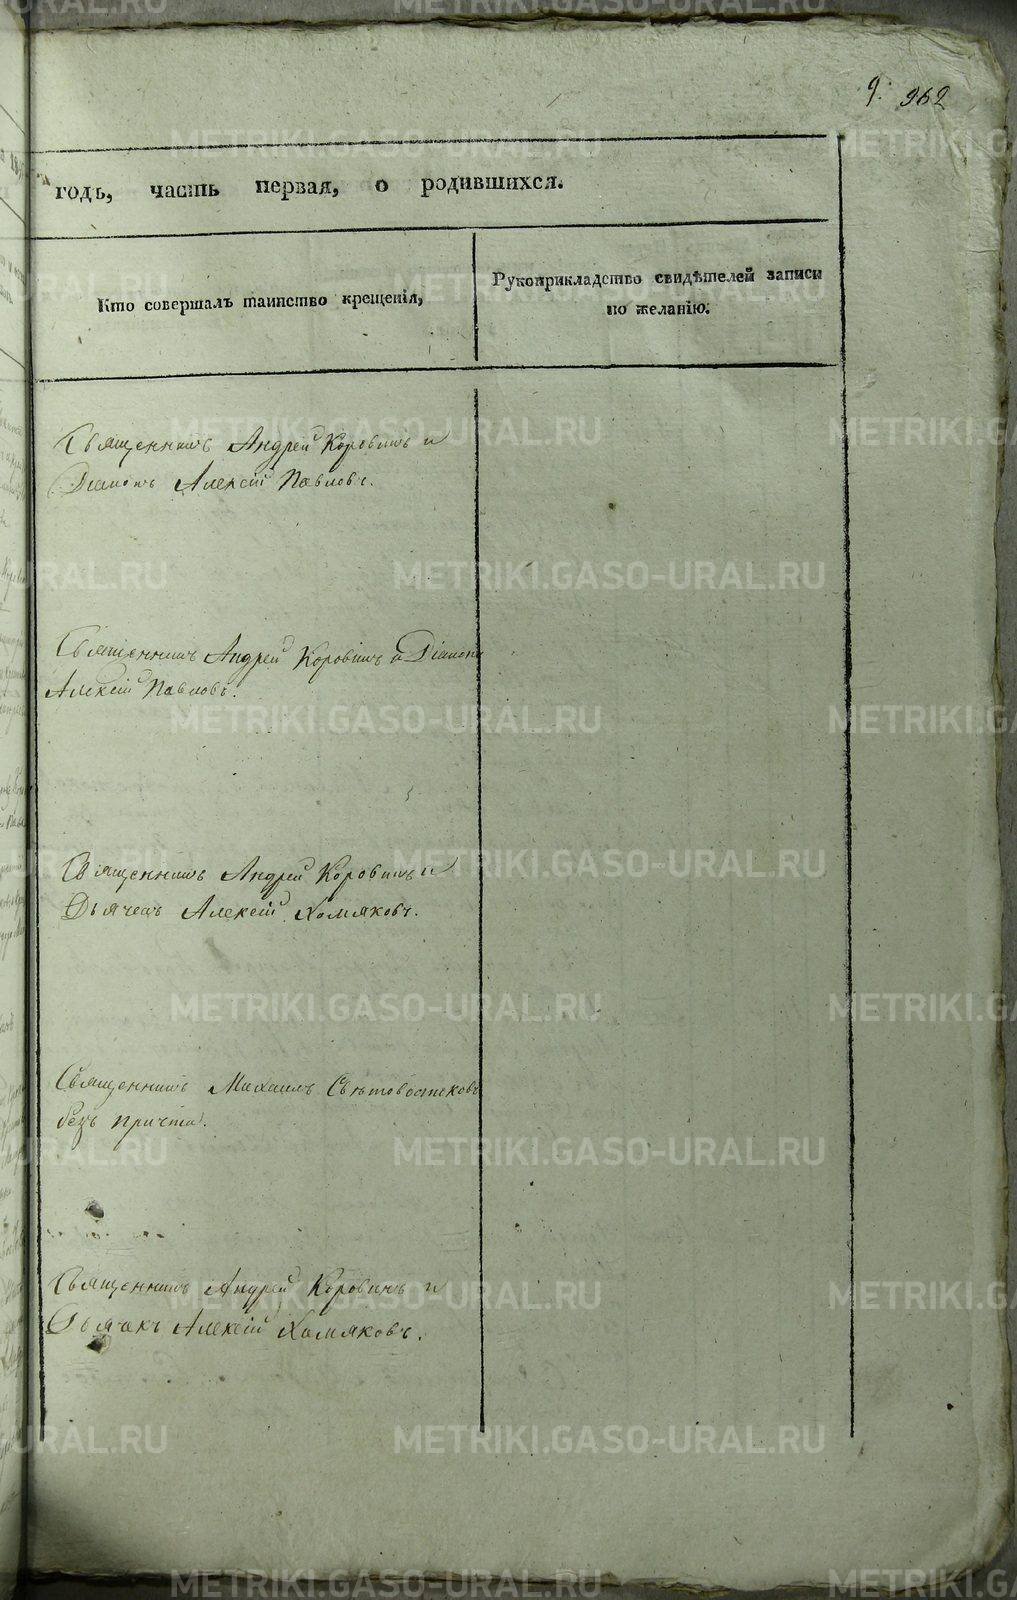 9. 962
годъ, часть первая, о родившихся.
Кто совершалъ таинство крещенія,
Рукоприкладство свидѣтелей записи
по желанію.
Священникъ Андрей Коровинъ и
Діаконъ Алексій Павловъ.
Священникъ Андрей Коровинъ и Діаконъ
Алексій Павловъ.
Священникъ Андрей Коровинъ и
Дьячекъ Алексій Хомяковъ.
Священникъ Михаилъ
безъ причта.
Священникъ Андрей Коровинъ и
Дьячекъ Алексій Хомяковъ.
METRIKI.GASO-URAL.RU